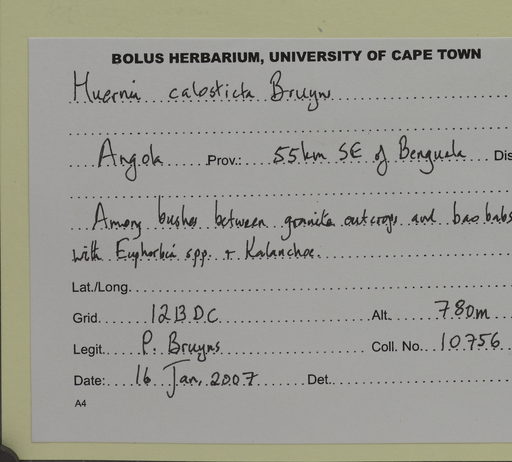 BOLUS HERBARIUM, UNIVERSITY OF CAPE TOWN
Huernia calosticta Bruyns
Angola Prov.: 55km SE of Benguela Dis
Among bushes between granite outcrops and baobabs
with Euphorbia spp. + Kalanchoe.
Lat./Long.
Grid. 1213DC Alt. 780m
Legit. P. Bruyns Coll. No. 10756
Date: 16 Jan, 2007 Det.
A4